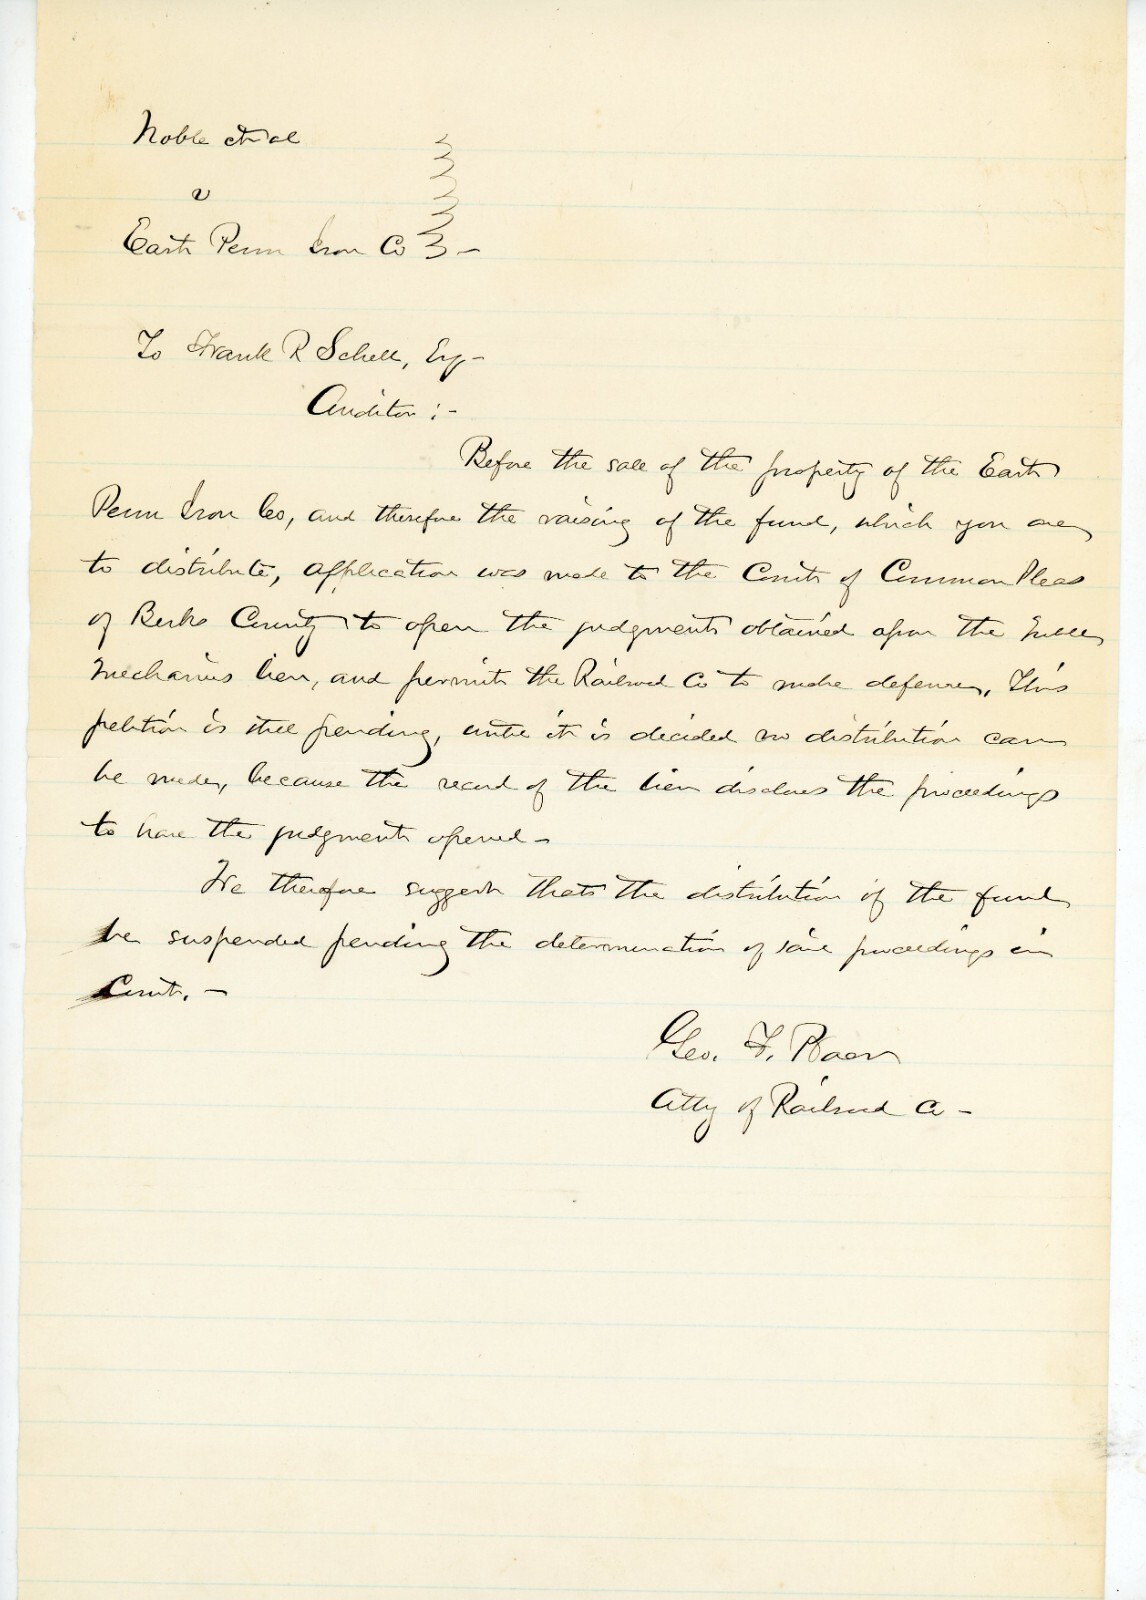 Noble et al
v
East Penn Iron Co –
To Frank R Schell, Esq –
Auditor :-
Before the sale of the property of the East
Penn Iron Co, and therefore the raising of the fund, which you are
to distribute, application was made to the Court of Common Pleas
of Berks County to open the judgments obtained upon the
Mechanics lien, and permit the Railroad Co to make defence, This
petition is still pending, until it is decided no distribution can
be made, because the record of the lien discloses the proceedings
to have the judgments opened –
We therefore suggest that the distribution of the fund
be suspended pending the determination of said proceedings in
Court. –
Geo. F. Baer
Atty of Railroad Co –